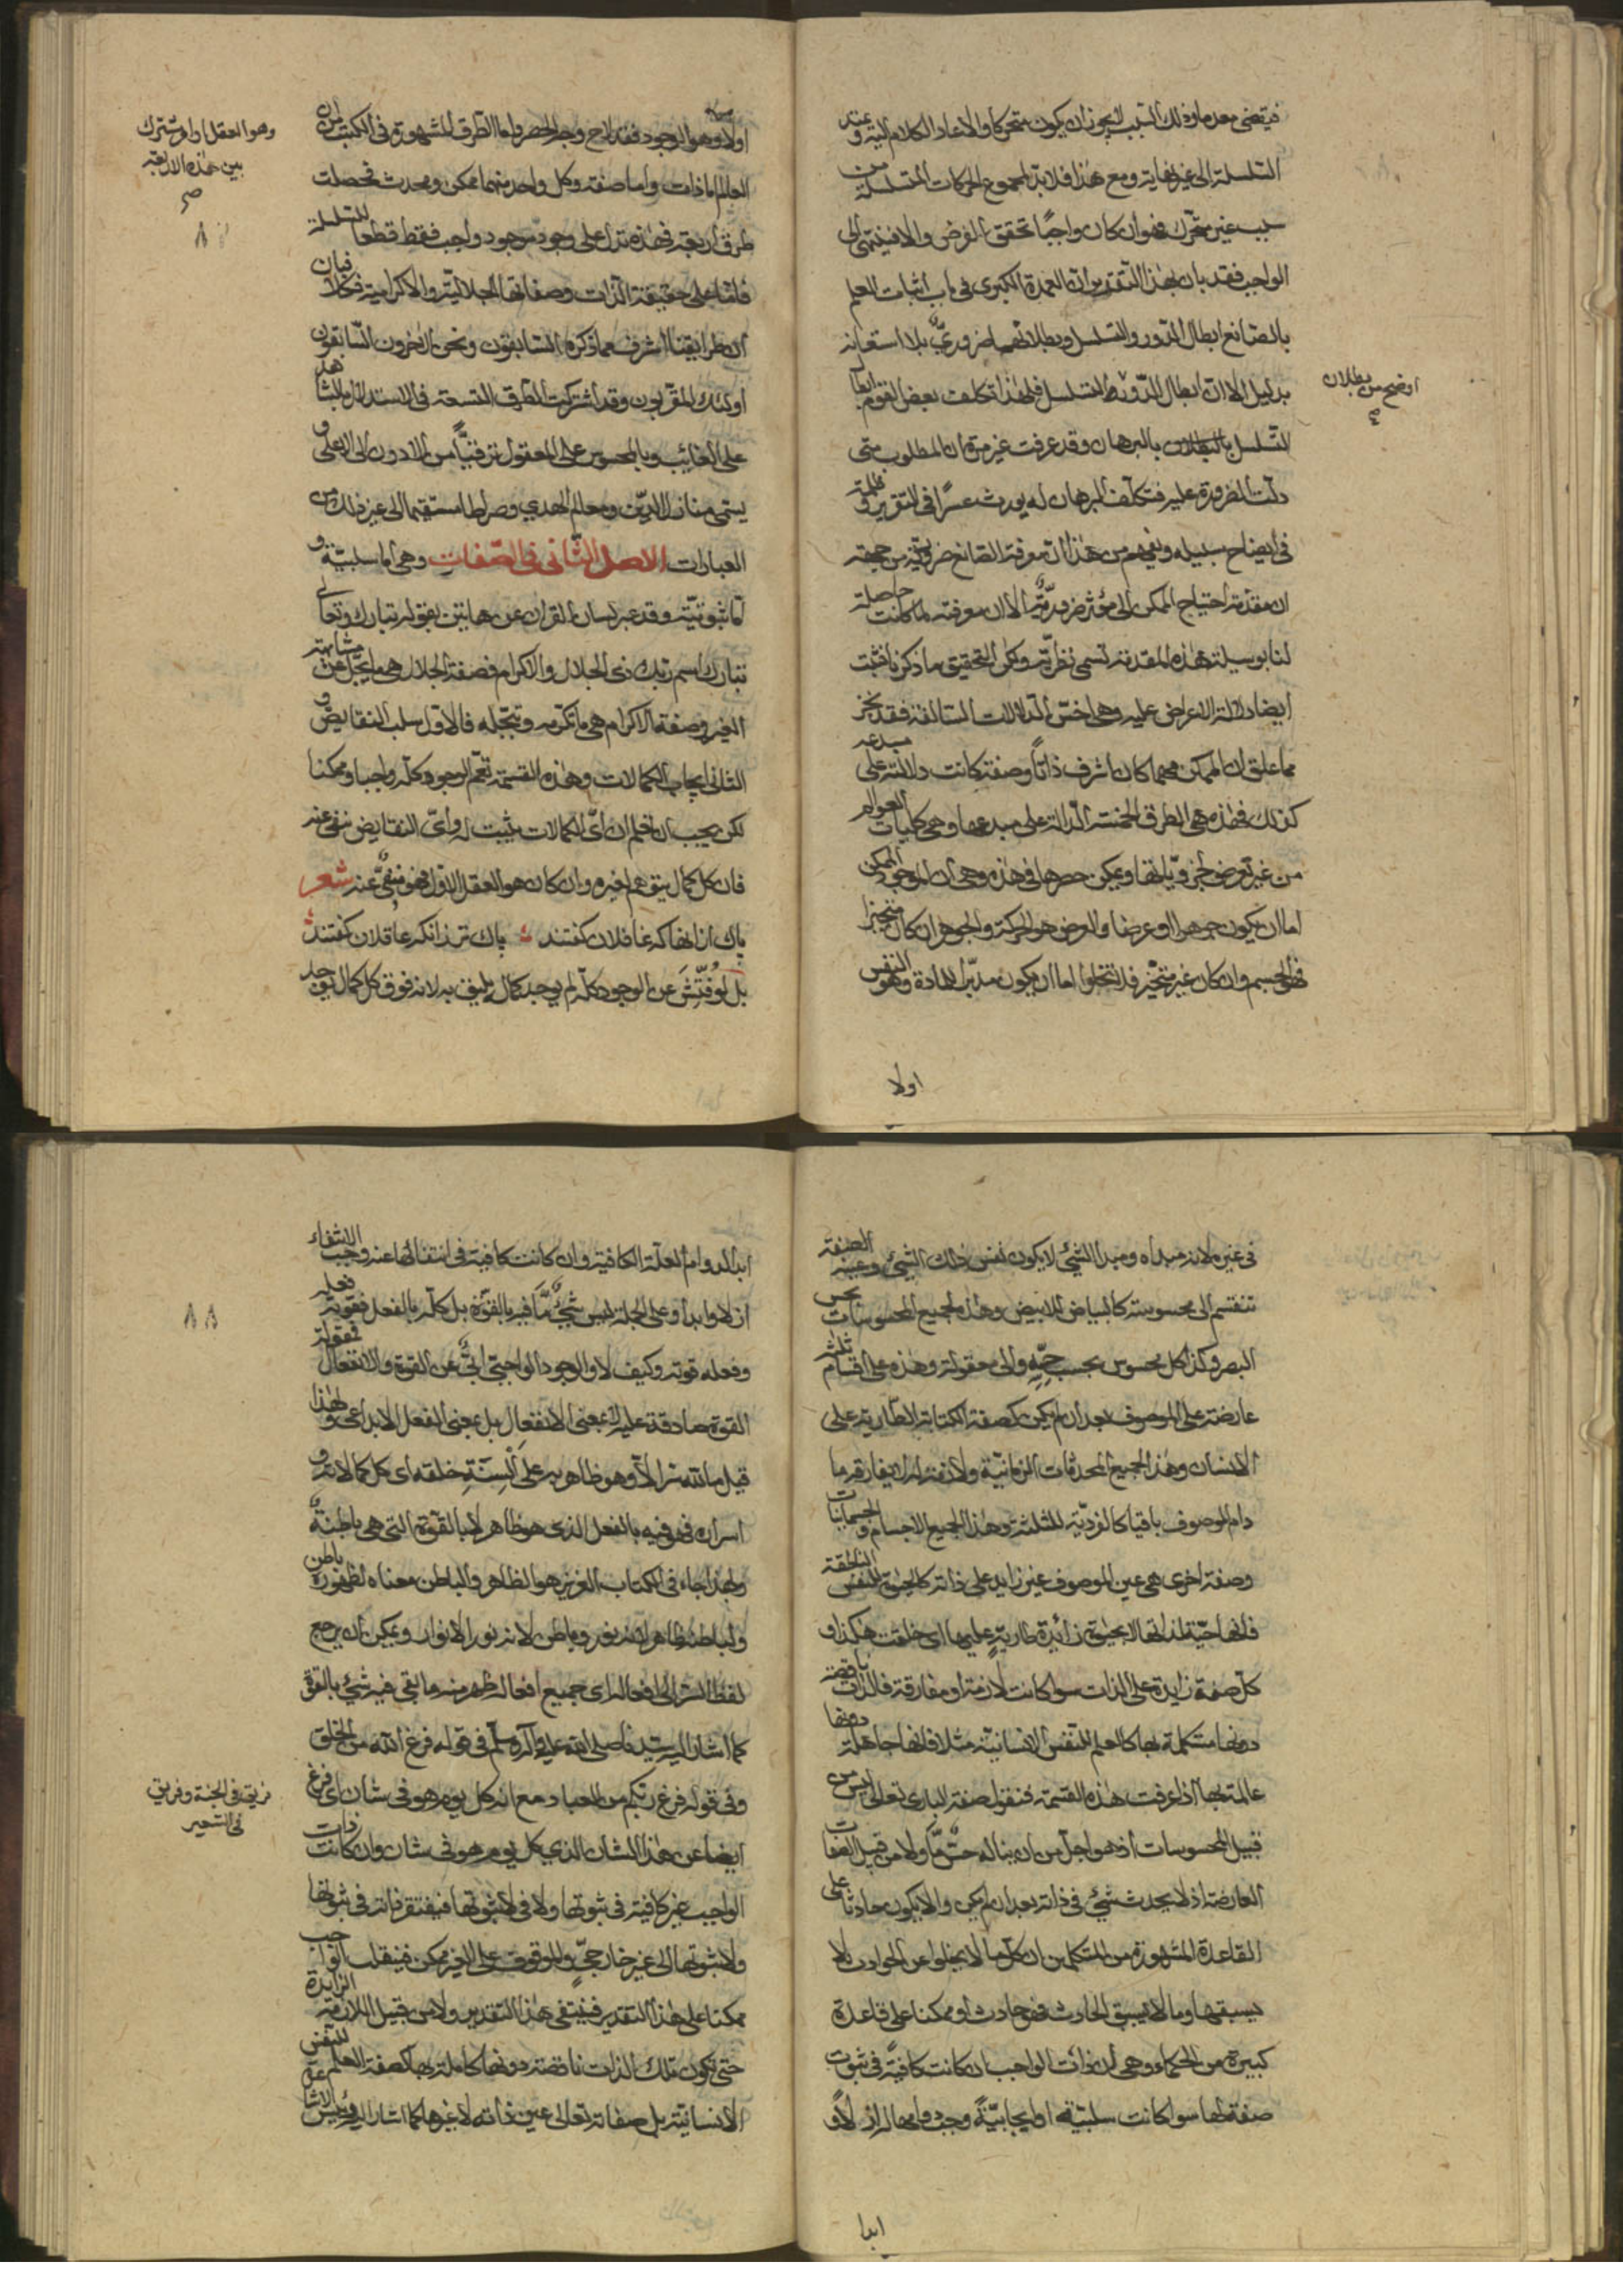 فيقتضى معدما وذلك السبب لا يجوز ان يكون متحركا والا عاد الكلام اليه وعنه
التسلسل الى غير نهاية ومع هذا فلا بد لمجموع الحركات المتسلسلة من
سبب غير متحرك فهو ان كان واجبًا تحقق الغرض والا فينتهى الى
الواجب فقد بان بهذا التقدير ان العمدة الكبرى فى باب اثبات العلم
بالصانع ابطال الدور والتسلسل وبطلانهما ضرورىٌّ بلا استعانه
بدليل الا ان ابطال الدور التسلسل فلهذا تكلف بعض القوم ابطال
اوضح من بطلان
التسلسل بالبرهان وقد عرفت غير مرة ان المطلوب متى
دلت الضرورة عليه فتكلف البرهان له يورث عسرًا فى التقرير وظلمة
فى ايضاح سبيله ويفهم من هذا ان معرفة الصانع ضرورية من جهة
ان مقدمة احتياج الممكن الى مؤثر ضروريّةٌ الا ان معرفته لما كانت حاصلة
لنا بوسيلة هذه المقدمة تسمى نظريّة ولكن التحقيق ما ذكرنا فثبت
ايضا دلالة الاعراض عليه وهى اخسّ الدلالات السالفة فقد نجز
مما علق ان الممكن مهما كان اشرف ذاتًا وصفة كانت دلالته على مبدعه
كذلك فهذه هى الطرق الخمسة الدالة على مبدعها وهى كليات العوالم
من غير تعرض لجزوياتها ويمكن حصرها فى هذه وهى ان الموجود الممكن
اما ان يكون جوهرا او عرضا والعرض هو الحركة والجوهر ان كان متحيزا
فهو الجسم وان كان غير متحيز فلا تخلوا اما ان يكون مدبّرا للمادة وهو النفس
اولا
اولا وهو الوجود فقد لاح وجه الحصر واما الطرق المشهورة فى الكتب ان
وهو العقل او امر مشترك
بين هذه الاربعة
العالم اما ذات واما صفة وكل واحد منهما ممكن ومحدث فحصلت
طرق اربعة فهذه تدل على وجود موجود واجب فقط قطعا للتسلسل
فاما على حقيقة الذات وصفاتها الجلالية والاكرامية فكلا فبان
ان طرايقنا اشرف مما ذكره السابقون ونحن الاخرون السّابقون
اولئك المقربون وقد اشتركت الطرق التسعة فى الاستدلال بالشاهد
على الغائب وبالمحسوس على المعقول ترقيًا من الادون الى الاعلى و
يسمى منازل الدين ومعالم الهدى وصراطا مستقيما الى غير ذلك من
العبارات الاصل الثّانى فى الصّفات وهى اما سلبيّة و
اما ثبوتيّة وقد عبر لسان القران عن هاتين بقوله تبارك وتعالى
تبارك اسم ربك ذى الجلال والاكرام فصفة الجلال هى ما يجلّ عن مشابهته
الغير وصفة الاكرام هى ما تكرمه وتبجّله فالاول سلب النقايض و
الثانى ايجاب الكمالات وهذه القسمة تعم الوجود كلّه واجبا وممكنا
لكن يجب ان تعلم ان اىّ الكمالات يثبت له واىّ النقايض ينفى عنه
فان كل كمال يتوهم لغيره وان كان هو العقل الاول فهو منفىٌّ عنه شعر
پاك ازانها كه غافلان كفتند پاك تر ذانكه عاقلان كفتند
بل لو فتّشَ عن الوجود كلّه لم يوجد كمال يليق به لانه فوق كل كمال يوجد
فى غيره لانه مبداه ومبدا الشئ لا يكون نفس ذلك الشئ وعينه الصفة
تنقسم الى محسوسة كالبياض للابيض وهذا لجميع المحسوسات بحس
البصر وكذا كل محسوس بحسب حسّه والى معقولة وهذه على اقسام ثلثة
عارضة على الموصوف بعد ان لم يكن كصفة الكتابة الطارية على
الانسان وهذا لجميع المحدثات الزمانيّة ولازمة له لا يفارقه ما
دام الموصوف باقيا كالفرديّة للثلثة وهذا لجميع الاجسام والجسمانيات
وصفة اخرى هى عين الموصوف غير زايد على ذاته كالحيوة للنفس الناطقة
فانها حيّة لذاتها لا بحيوة زائدة طارية عليها اى خلقت هكذا و
كلّ صفة زايدة على الذات سوا كانت لازمة او مفارقة فالذات ناقصة
دونها مستكملة بها كالعلم للنفس الانسانيّة مثلا فانها جاهلة دونها
عالمة بها اذا عرفت هذه القسمة فنقول صفة البارى تعالى ليس من
قبيل المحسوسات اذ هو اجلّ من ان يناله حسٌّ مّا ولا من قبيل الصفات
العارضة اذ لا يحدث شئ فى ذاته بعد ان لم يكن والا يكون حادثا على
القاعدة المشهورة من المتكلمين ان كلّ ما لا يخلوا عن الحوادث لا
يسبقها وما لا يسبق الحادث فهو حادث او ممكنا على قاعدة
كبيرة من الحكماء وهى ان ذات الواجب ان كانت كافيةً فى ثبوت
صفة لها سوا كانت سلبيّة او ايجابيّةً وجب دوامها ازلاً و
ابدا
ابدا لدوام العلّة الكافية وان كانت كافية فى انتفائها عنه وجب الانتفاء
ازلا وابدا وعلى الجملة ليس شئٌ مّا فيه بالقوّة بل كلّه بالفعل فقوته فعله
وفعله قوته وكيف لا والوجود الواجبىّ ابىٌّ عن القوة والانفعال فمقولة
القوة صادقة عليه لا بمعنى الانفعال بل بمعنى الفعل الابداعى ولهذا
قيل ما لله سرّ الّا وهو ظاهر به على اَلْسِنَةِ خلقه اى كل كمالاته و
اسراره فهو فيه بالفعل الذى هو ظاهر لا بالقوّة التى هى باطنةٌ
ولهذا جاء فى الكتاب العزيز هو الظاهر والباطن معناه لظهوره باطن
ولباطنه ظاهر لانه نور وباطن لانه نور الانوار ويمكن ان يرجع
لفظ السّر الى افعاله اى جميع افعاله ظهر منه ما بقى فيه شئ بالقوة
كما اشار اليه سيدنا صلى الله عليه وآله وسلّم فى قوله فرغ الله من الخلق
وفى قوله فرغ ربّكم من العباد مع انه كل يوم هو فى شان اى فرغ
فريق فى الجنة وفريق
فى السّعير
ايضا عن هذا الشان الذي كل يوم هو فى شان وان كانت ذات
الواجب غير كافية فى ثبوتها ولا فى لا ثبوتها فيفتقر ذاته فى ثبوتها
ولا ثبوتها الى غير خارجىٍّ والموقوف على الغير ممكن فينقلب الواجب
ممكنا على هذا التقدير فينبغى هذا التقدير ولا من قبيل اللازمة الزايدة
حتى تكون تلك الذات ناقصة دونها كاملة بها كصفة العلم للنفس
الانسانيّة بل صفاته تعالى عين ذاته لا غيرها كما اشار اليه رئيس